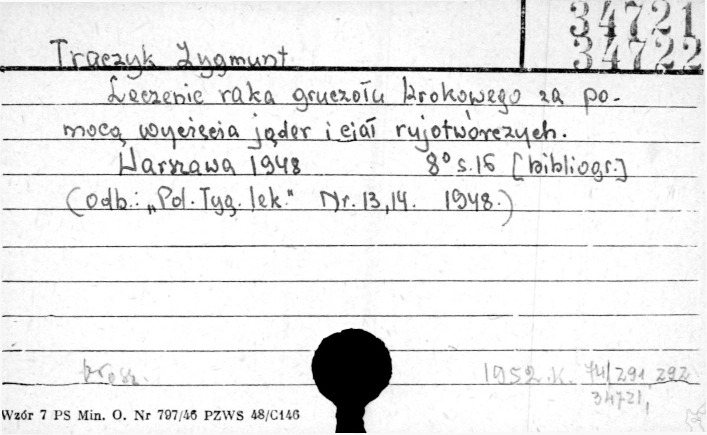 34721
34722
Traczyk Zygmunt
Leczenie raka gruczołu krokowego za po-
mocą wycięcia jąder i ciał ryjotwórczych.
Warszawa 1948 8° s.16 [bibliogr.]
(odb.: „Pol. Tyg. lek." Nr. 13,14. 1948.)
brosz. 1952.K. 74/291 292
34721,
Wzór 7 PS Min. O. Nr 797/46 PZWS 48/C146